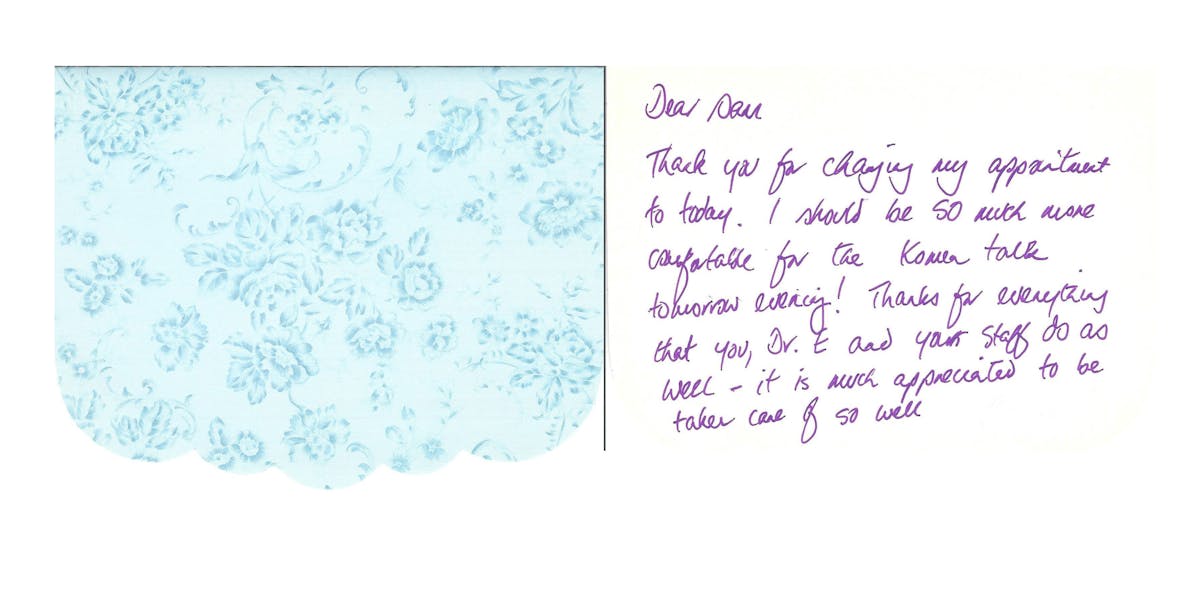 Dear
Thank you for changing my appointment
to today. I should be SO much more
comfortable for the Komen talk
tomorrow evening! Thanks for everything
that you, Dr. E and your staff do as
well - it is much appreciated to be
taken care of so well